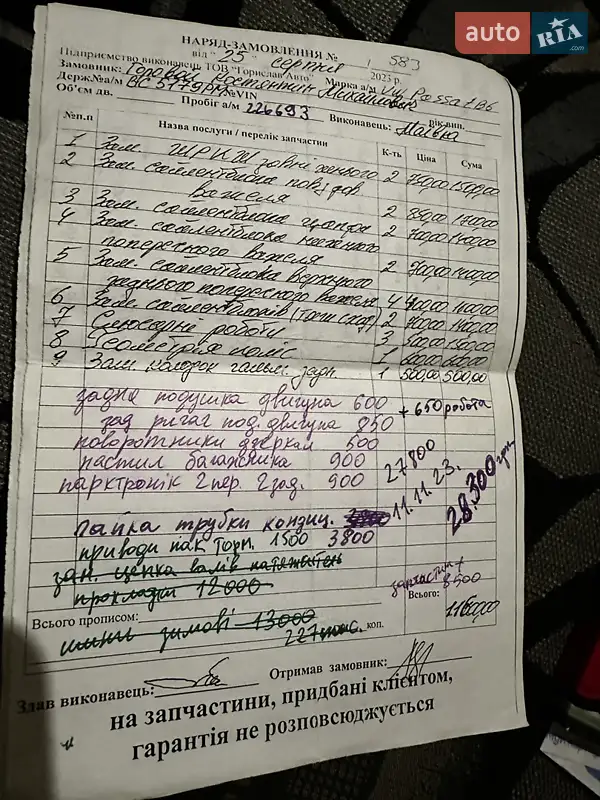 auto RIA .com
НАРЯД-ЗАМОВЛЕННЯ № 583
від "25" серпня 2023 р.
Підприємство виконавець ТОВ "Торислав Авто"
Замовник: Михайлович Марка а/м VW Passat B6
Держ.№а/м №VIN рік вип.
Об'єм дв. Пробіг а/м 226693 Виконавець:
№п.п Назва послуги / перелік запчастини К-ть Ціна Сума
1 Зам. ШРКШ 2 750,00 1500,00
2 Зам. саллентблока 2
важеля
3 Зам. саллентблока 2 700,00 1400,00
4 Зам. саллентблока
поперечного важеля 2 700,00 1400,00
5 Зам. саллентблока верхнього
заднього поперечного важеля 4 400,00 1600,00
6 Зам. 2 700,00 1400,00
7 Слюсарні роботи 3 500,00 1500,00
8 Геометрія коліс 1 600,00 600,00
9 Зам. колодок гальм. задн. 1 500,00 500,00
задня подушка двигуна 600
+ 650 робота
зад ричаг под. двигуна 850
поворотники дзеркал 500
пастил багажника 900 27800
парктронік 2 пер. 2 зад. 900
11.11.23. 28.300 грн
пайка трубки кондиц.
приводи пак торм. 1500 3800
зам. цепка валів натяжитель
прокладки 12000
запчастини +
8500
Всього: 11600,00
Всього прописом:
шини зимові 13000 коп.
227тис.
Здав виконавець: Отримав замовник:
на запчастини, придбані клієнтом,
гарантія не розповсюджується